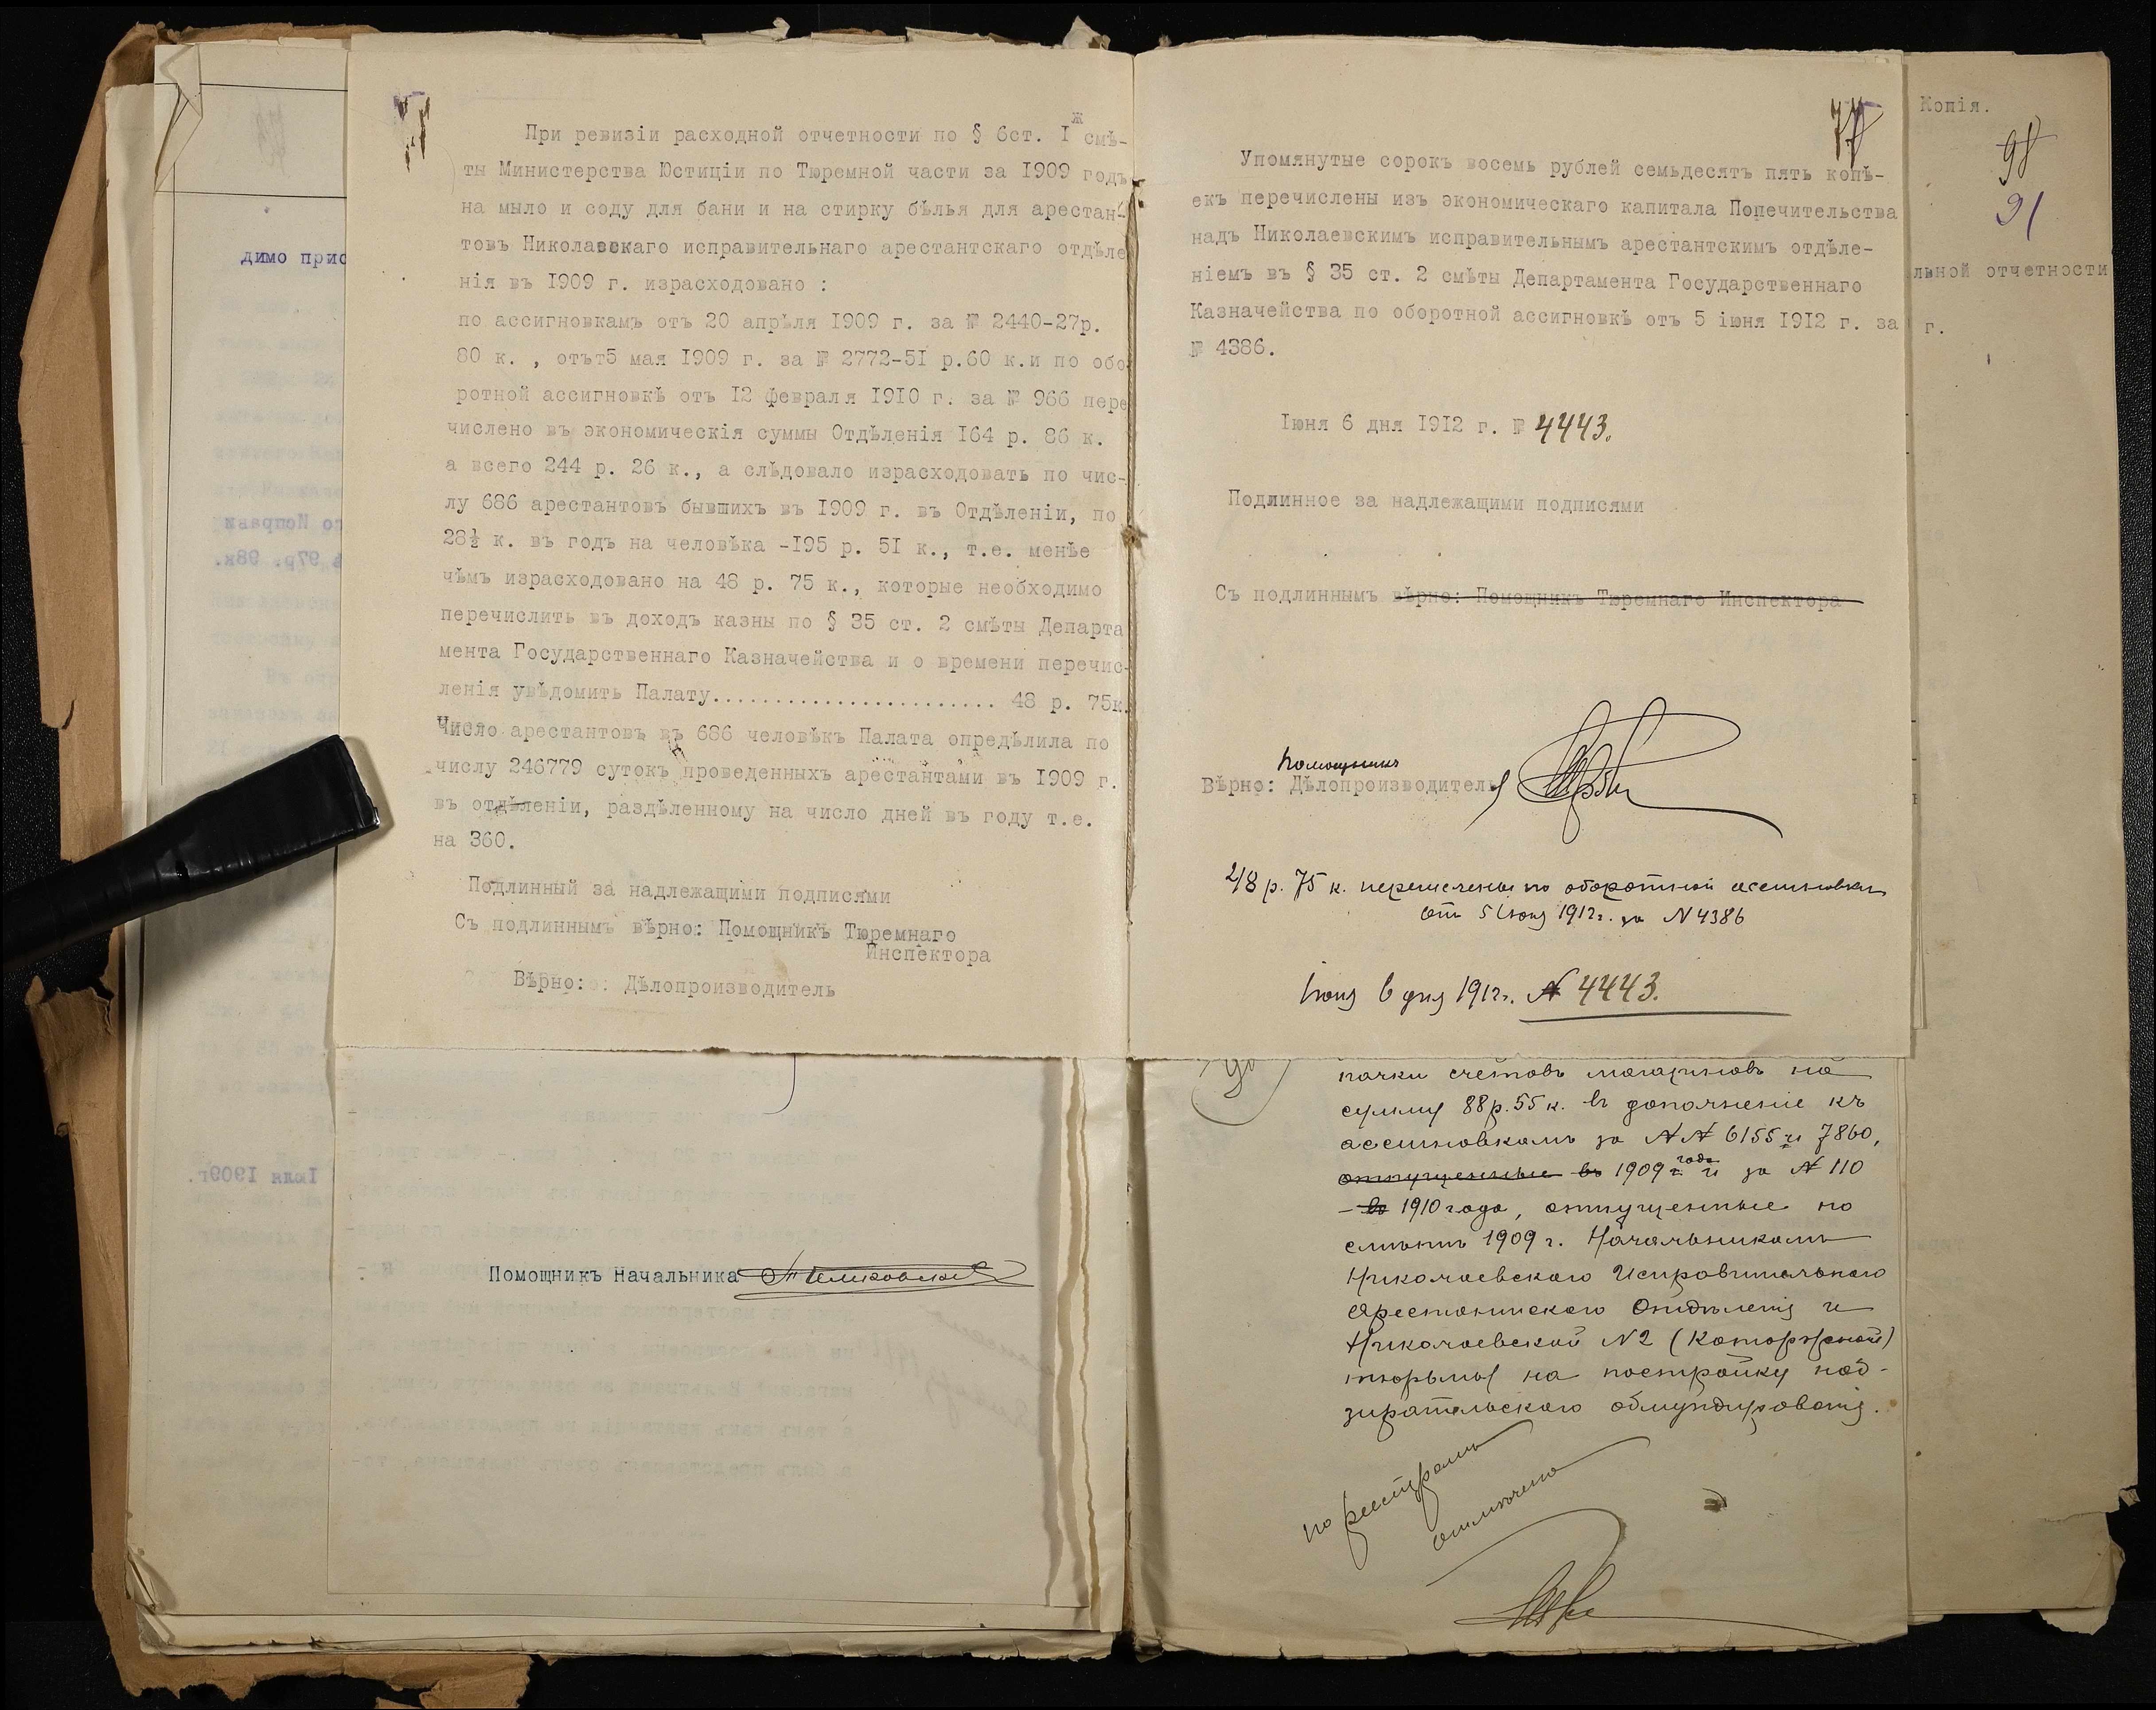 При ревизіи расходной отчетности по § 6ст. I ж смѣ-
ты Министерства Юстиціи по Тюремной части за 1909 годъ
на мыло и соду для бани и на стирку бѣлья для арестан
товъ Николаевскаго исправительнаго арестантскаго отдѣле
нія въ 1909 г. израсходовано :
по ассигновкамъ отъ 20 апрѣля 1909 г. за № 2440-27р.
80 к. , отъ 5 мая 1909 г. за № 2772-51 р.60 к.и по обо
ротной ассигновкѣ отъ 12 февраля 1910 г. за № 966 пере
числено въ экономическія суммы Отдѣленія 164 р. 86 к.
а всего 244 р. 26 к., а слѣдовало израсходовать по чис-
лу 686 арестантовъ бывшихъ въ 1909 г. въ Отдѣленіи, по
28½ к. въ годъ на человѣка -195 р. 51 к., т.е. менѣе
чѣмъ израсходовано на 48 р. 75 к., которые необходимо
перечислить въ доходъ казны по § 35 ст. 2 смѣты Департа
мента Государственнаго Казначейства и о времени перечис-
ленія увѣдомить Палату....................... 48 р. 75к.
Число арестантовъ въ 686 человѣкъ Палата опредѣлила по
числу 246779 сутокъ проведенныхъ арестантами въ 1909 г.
въ отдѣленіи, раздѣленному на число дней въ году т.е.
на 360.
Подлинный за надлежащими подписями
Съ подлиннымъ вѣрно: Помощникъ Тюремнаго
Инспектора
Вѣрно: : Дѣлопроизводитель
димо прис
Помощникъ Начальника
77
Упомянутые сорокъ восемь рублей семьдесятъ пять копѣ-
екъ перечислены изъ экономическаго капитала Попечительства
надъ Николаевскимъ исправительнымъ арестантскимъ отдѣле-
ніемъ въ § 35 ст. 2 смѣты Департамента Государственнаго
Казначейства по оборотной ассигновкѣ отъ 5 іюня 1912 г. за
№ 4386.
Іюня 6 дня 1912 г. № 4443.
Подлинное за надлежащими подписями
Съ подлиннымъ вѣрно: Помощникъ Тюремнаго Инспектора
Помощникъ
Вѣрно: Дѣлопроизводителя
48 р. 75 к. перечислены по оборотной ассигновки
отъ 5 Іюня 1912г. за N 4386
Іюня 6 дня 1912г. № 4443.
пачки счетовъ магазиновъ на
сумму 88р. 55 к. въ дополненіе къ
ассигновкамъ за №№ 6155 и 7860,
отпущенные въ 1909 г. года и за № 110
- въ 1910 года, отпущенные по
смѣтѣ 1909 г. Начальникамъ
Николаевскаго Исправительнаго
Арестантскаго Отдѣленія и
Николаевской N2 (Каторжной)
тюрьмы на постройку над-
зирательскаго обмундированія.
по реестрамъ
отмѣчено
Копія.
98
91
льной отчетности
г.